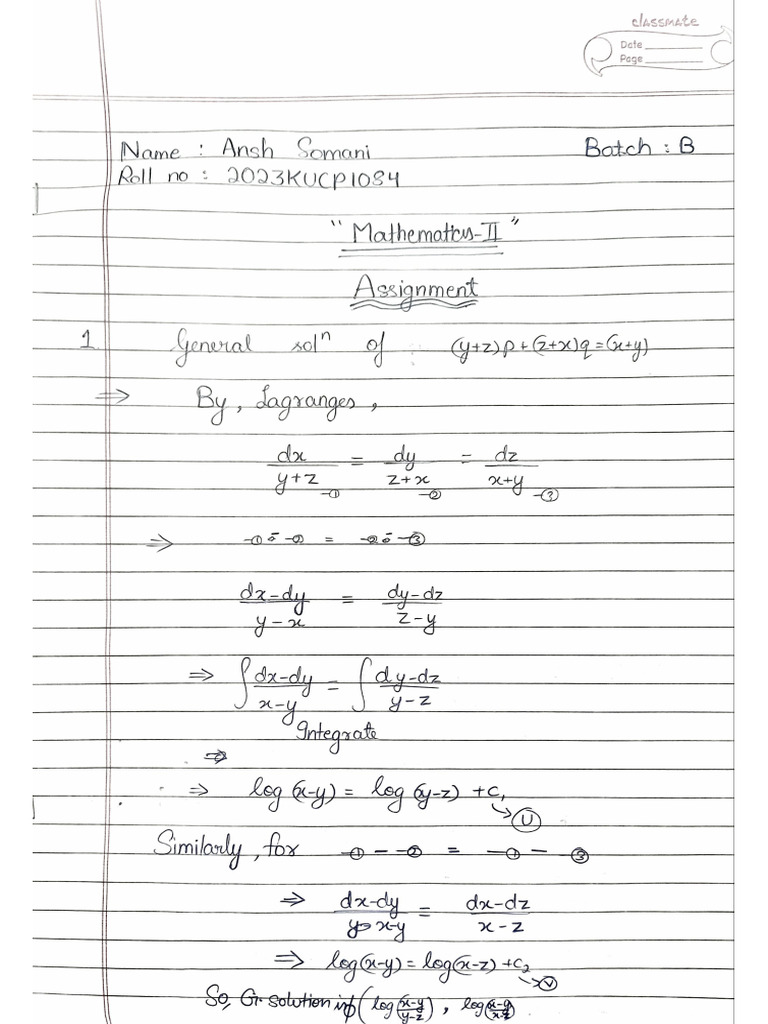 classmate
Date
Page
Name : Ansh Somani Batch : B
Roll no : 2023KUCP1084
"Mathematics-II"
Assignment
1 General solⁿ of (y+z)p+(z+x)q=(x+y)
⇒ By, Lagranges,
dx/(y+z) –① = dy/(z+x) –② = dz/(x+y) –③
⇒ –① – –② = –② – –③
(dx–dy)/(y–x) = (dy–dz)/(z–y)
⇒ ∫(dx–dy)/(x–y) = ∫(dy–dz)/(y–z)
Integrate
⇒ log(x–y) = log(y–z) + c₁ → U
Similarly, for –① – –② = –① – ③
⇒ (dx–dy)/(x–y) = (dx–dz)/(x–z)
⇒ log(x–y) = log(x–z) + c₂ → V
So, G. solution is ϕ(log (x–y)/(y–z), log (x–y)/(x–z)